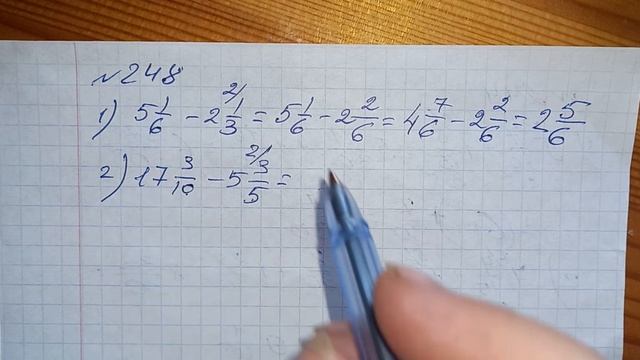 №248
1) 5 1/6 - 2 1/3 2/ = 5 1/6 - 2 2/6 = 4 7/6 - 2 2/6 = 2 5/6
2) 17 3/10 - 5 3/5 2/ =